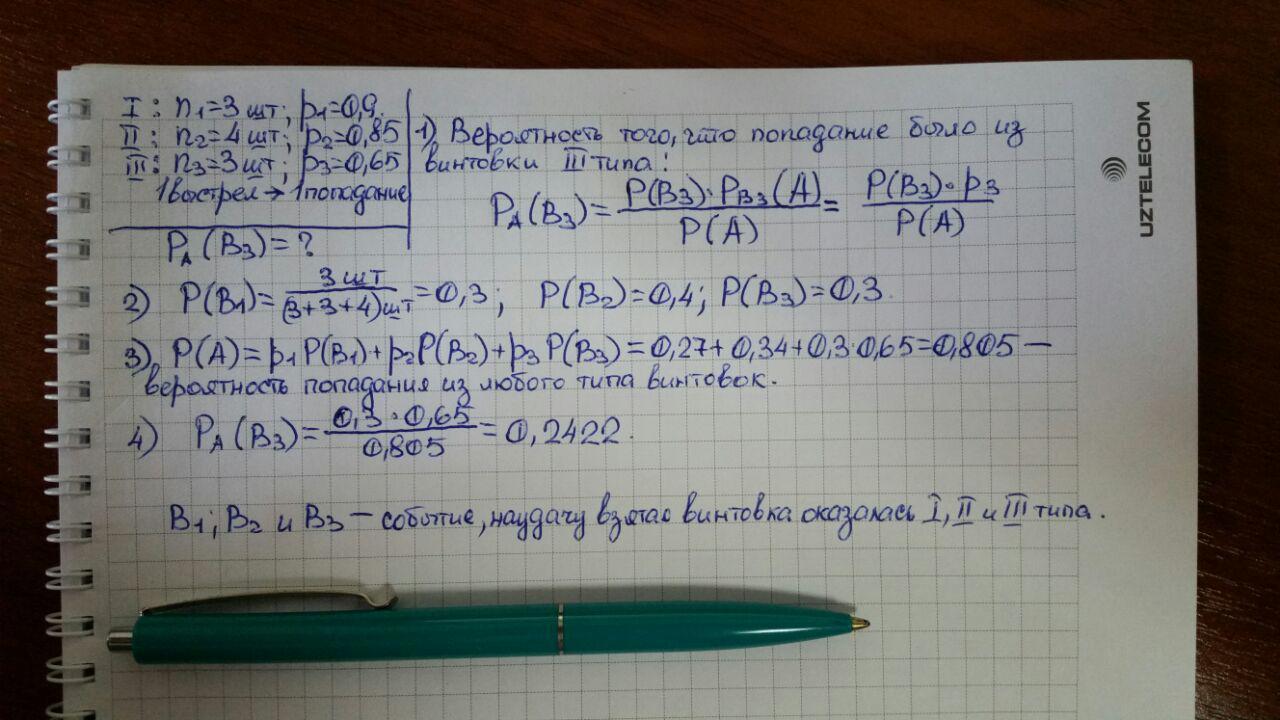 I: n1=3 шт; p1=0,9.
II: n2=4 шт; p2=0,85
III: n3=3 шт; p3=0,65
1 выстрел → 1 попадание
PA(B3)=?
1) Вероятность того, что попадание было из
винтовки III типа:
PA(B3)= P(B3)·PB3(A) / P(A) = P(B3)·p3 / P(A)
2) P(B1)= 3 шт / (3+3+4) шт =0,3; P(B2)=0,4; P(B3)=0,3.
3) P(A)=p1P(B1)+p2P(B2)+p3P(B3)=0,27+0,34+0,3·0,65=0,805 —
вероятность попадания из любого типа винтовок.
4) PA(B3)= 0,3·0,65 / 0,805 =0,2422.
B1; B2 и B3 — событие, наудачу взятая винтовка оказалась I, II и III типа.
UZTELECOM